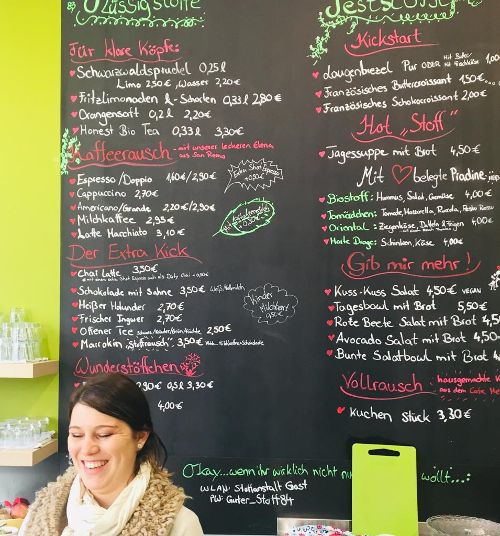 Flüssigstoffe
Für klare Köpfe:
Schwarzwaldsprudel 0,25 l
Limo 2,50 €, Wasser 2,20€
Fritzlimonaden & -Schorlen 0,33 l 2,80 €
Orangensaft 0,2 l 2,20€
Honest Bio Tea 0,33 l 3,30€
Kaffeerausch - mit unserer leckeren Elena
aus San Remo
Espresso/Doppio 1,60 €/2,90€
Extra Shot Espresso
0,50€
Cappuccino 2,70€
Americano/Grande 2,20 €/2,90€
Milchkaffee 2,95€
Latte Macchiato 3,10 €
Der Extra Kick
Chai Latte 3,50€
Schokolade mit Sahne 3,50€
Heißer Holunder 2,70€
Kinder
Milchbar!
0,50€
Frischer Ingwer 2,70€
Offener Tee 2,50€
Marrokin „Stoffrausch" 3,50€
Wunderstöffchen
2,90€ 0,5l 3,30€
4,00€
Feststoffe
Kickstart
Laugenbrezel Pur ODER Mit Butter 1,00
Mit Frischkäse
Französisches Buttercroissant 1,50€
Französisches Schokocroissant 2,00€
Hot „Stoff"
Tagessuppe mit Brot 4,50€
Mit belegte Piadine
Biostoff: Hummus, Salat, Gemüse 4,00€
Tomädchen: Tomate, Mozzarella, Rucola, Pesto Rosso
Oriental: Ziegenkäse, Datteln & Feigen 4,00€
Harte Droge: Schinken, Käse 4,00€
Gib mir mehr!
Kuss-Kuss Salat 4,50€ VEGAN
Tagesbowl mit Brot 5,50€
Rote Beete Salat mit Brot 4,50
Avocado Salat mit Brot 4,50
Bunte Salatbowl mit Brot
Vollrausch: hausgemachte
aus dem Cafe
Kuchen Stück 3,30€
Okay...wenn ihr wirklich nicht wollt...:
WLAN: Stoffanstalt Gast
PW: Guter_Stoff84